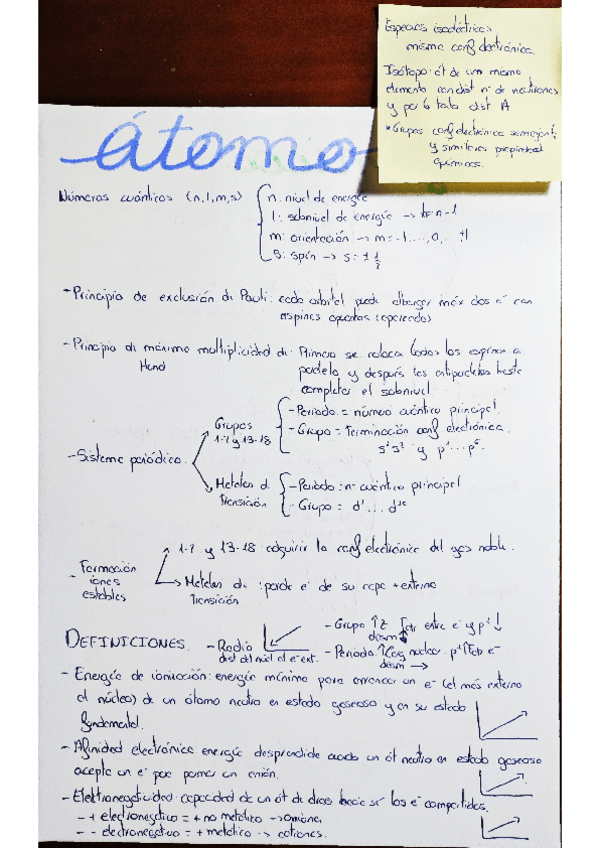 Especies isoeléctricas
misma conf electrónica.
Isótopo: át de un mismo
elemento con dist nº de neutrones
y por lo tato dist A
*Grupos conf electrónica semejante
y similares propiedad
químicas.
átomo
Números cuánticos (n,l,m,s)
n: nivel de energía
l: subnivel de energía → n-1
m: orientación → m=-l,...,0,... +l
s: spin → s = ± 1/2
-Principio de exclusión de Pauli: cada orbital puede albergar máx dos e⁻ con
espines opuestos (apareado)
-Principio de máxima multiplicidad de Hund
Primero se coloca todos los espines a
paralelo y después los antiparalelos hasta
completar el subnivel
-Sistema periódico
Grupos
1-2 y 13-18
-Periodo = número cuántico principal.
-Grupo = Terminación conf electrónica.
s¹ s² y p¹...p⁶.
Metales d.
transición
-Periodo: nº cuántico principal
-Grupo = d¹...d¹⁰
-Formación
iones
estables
1-2 y 13-18 adquirir la conf electrónica del gas noble.
Metales de transición : pierde e⁻ de su capa + externa
DEFINICIONES.
-Radio
dist del núcl al e⁻ ext.
-Grupo ↑Z Fatr entre e⁻ y p⁺ ↓
dism
-Periodo: ↑Carg nuclear p⁺ ↑Fatr e⁻
dism →
-Energía de ionización: energía mínima para arrancar un e⁻ (el más externo
al núcleo) de un átomo neutro en estado gaseoso y en su estado
fundamental.
-Afinidad electrónica energía desprendida cuando un át neutro en estado gaseoso
acepta un e⁻ para formar un anión.
-Elektronegatividad capacidad de un át de atraer hacia sí los e⁻ compartidos.
- + electronegativo = + no metálico → aniones
- - electronegativo = + metálico → cationes.